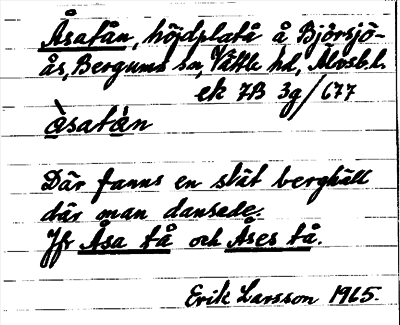 Åsatån, höjdplatå å Björsjö-
ås, Bergums sn, Vättle hd, Älvsb. l.
ek 7B 3g/677
àsatán
Där fanns en slät berghäll
där man dansade.
Jfr Åsa tå och Åses tå.
Erik Larsson 1965.